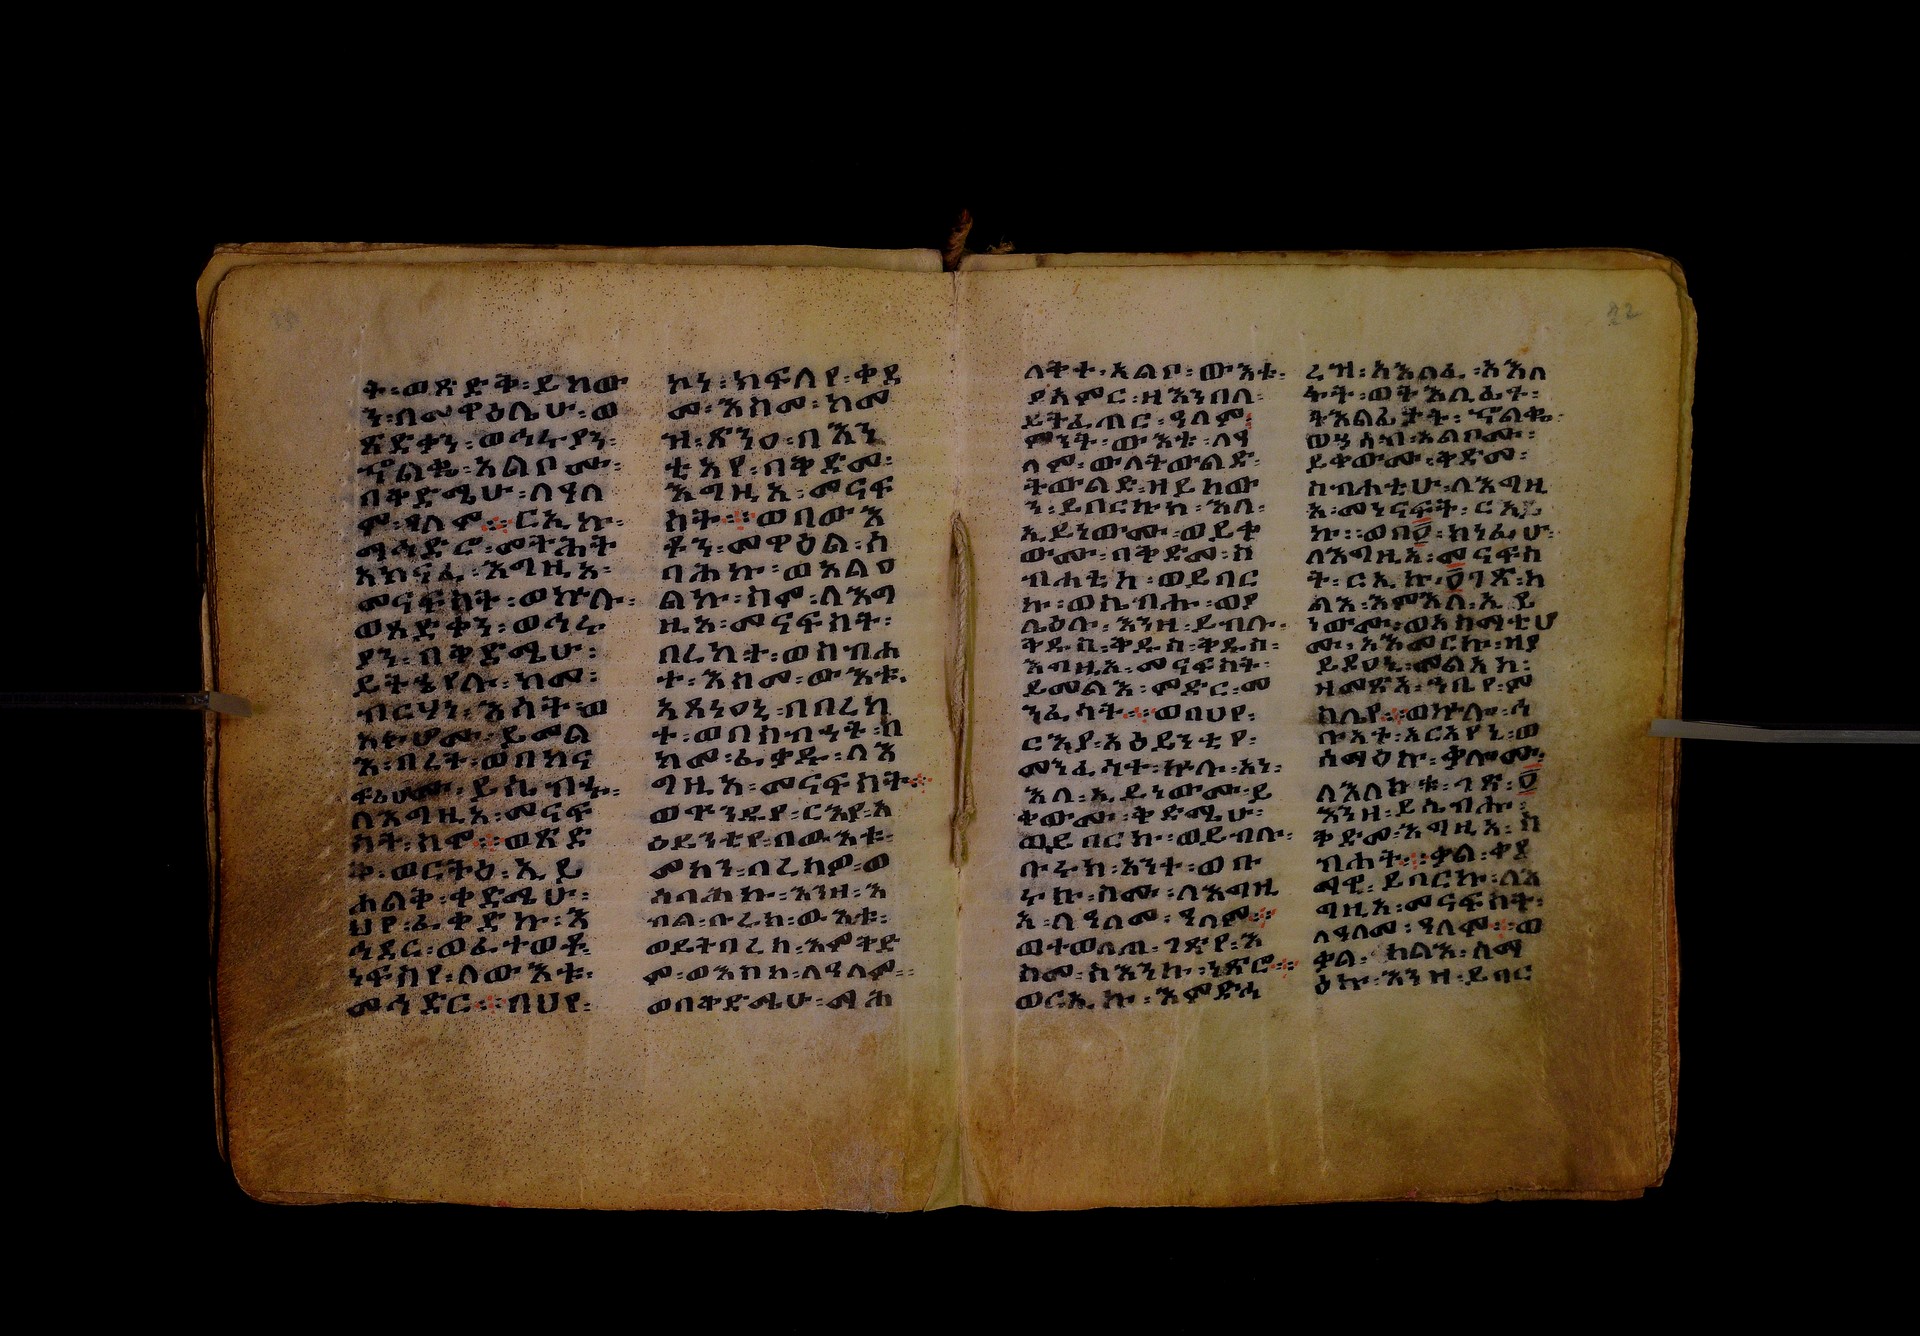 ት፡ወጽድቅ፡ይከው
ን፡በመዋዕሊሁ፡ወ
ጽድቀን፡ወኅሩያን፡
ኍልቈ፡አልቦሙ፡
በቅድሜሁ፡ለዓለ
ም፡ዓለም፨ርኢኩ፡
ማኅድሮ፡መትሕተ
አክናፊ፡እግዚአ፡
መናፍስት፡ወኵሉ፡
ወጻድቃን፡ወኅሩ
ያን፡በቅድሜሁ፡
ይትሄየሉ፡ከመ፡
ብርሃነ፡እሳት፡ወ
አፉሆሙ፡ይመል
እ፡በረከተ፡ወከና
ፍሪሆሙ፡ይሴብሑ፡
ለእግዚአ፡መናፍ
ስት፡ስሞ፨ወጽድ
ቅ፡ወርትዕ፡ኢይ
ሐልቅ፡ቀድሜሁ፡
ህየ፡ፈቀድኩ፡እ
ኅደር፡ወፈተወቶ፡
ነፍስየ፡ለውእቱ፡
መኅድር፨በህየ፡
ኮነ፡ክፍለየ፡ቀዳ
መ፡እስመ፡ከመ
ዝ፡ጸንዐ፡በእን
ቲአየ፡በቅድመ፡
እግዚአ፡መናፍ
ስት፨ወበውእ
ቶን፡መዋዕል፡ሰ
ባሕኩ፡ወአልዐ
ልኩ፡ስሞ፡ለእግ
ዚአ፡መናፍስት፡
በረከት፡ወስብሐ
ተ፡እስመ፡ውእቱ፡
አጽንዐኒ፡በበረከ
ት፡ወበስብሐት፡በ
ከመ፡ፈቃዱ፡ለእ
ግዚአ፡መናፍስት፨
ወጕንዱየ፡ርእያ፡አ
ዕይንቲየ፡በውእቱ፡
መካን፡ባረክዎ፡ወ
ሰባሕኩ፡እንዘ፡እ
ብል፡ቡሩክ፡ውእቱ፡
ወይትባረክ፡እምቅድ
ም፡ወእስከ፡ለዓለም፡
ወበቅድሜሁ፡ማሕ
ለቅት፡አልቦ፡ውእቱ፡
ያአምር፡ዘእንበለ፡
ይትፈጠር፡ዓለም፡
ምንት፡ውእቱ፡ለዓ
ለም፡ወለትውልድ፡
ትውልድ፡ዘይከው
ን፡ይባርኩከ፡እለ፡
ኢይነውሙ፡ወይቀ
ውሙ፡በቅድመ፡ስ
ብሐቲከ፡ወይባር
ኩ፡ወይሴብሑ፡ወያ
ሌዕሉ፡እንዘ፡ይብሉ፡
ቅዱስ፡ቅዱስ፡ቅዱስ፡
እግዚአ፡መናፍስት፡
ይመልእ፡ምድር፡መ
ንፈሳት፨ወበህየ፡
ርእያ፡አዕይንቲየ፡
መንፈሳተ፡ኵሉ፡እን፡
እለ፡ኢይነውሙ፡ይ
ቀውሙ፡ቅድሜሁ፡
ወይባርኩ፡ወይብሉ፡
ቡሩክ፡አንተ፡ወቡ
ሩክ፡ስሙ፡ለእግዚ
አ፡ለዓለመ፡ዓለም፨
ወተወለጠ፡ገጽየ፡እ
ስመ፡ስእንኩ፡ነጽሮ፨
ወርኢኩ፡እምድኅ
ረዝ፡አእላፈ፡አእላ
ፋት፡ወትእልፊተ፡
ትእልፊታት፡ኍልቈ፡
ወሃሳብ፡አልቦሙ፡
ይቀውሙ፡ቅድመ፡
ስብሐቲሁ፡ለእግዚ
አ፡መናፍስት፡ርኢ
ኩ፡ወበ፬፡ክነፊሁ፡
ለእግዚአ፡መናፍስ
ት፡ርኢኩ፡፬ገጸ፡ካ
ልአ፡እምእለ፡ኢይ
ነውሙ፡ወአስማቲሆ
ሙ፡አእመርኩ፡ዘያ
ይድዐኒ፡መልአክ፡
ዘመጽአ፡ኀቤየ፡ም
ስሌየ፨ወኵሎ፡ኅ
ቡአተ፡አርአየኒ፡ወ
ሰማዕኩ፡ቃሎሙ፡
ለእልክቱ፡ገጽ፡፬
እንዘ፡ይሴብሑ፡
ቅድመ፡እግዚአ፡ስ
ብሐት፨ቃል፡ቀዳ
ማዊ፡ይባርኮ፡ለእ
ግዚአ፡መናፍስት፡
ለዓለመ፡ዓለም፨ወ
ቃለ፡ካልአ፡ሰማ
ዕኩ፡እንዘ፡ይባር